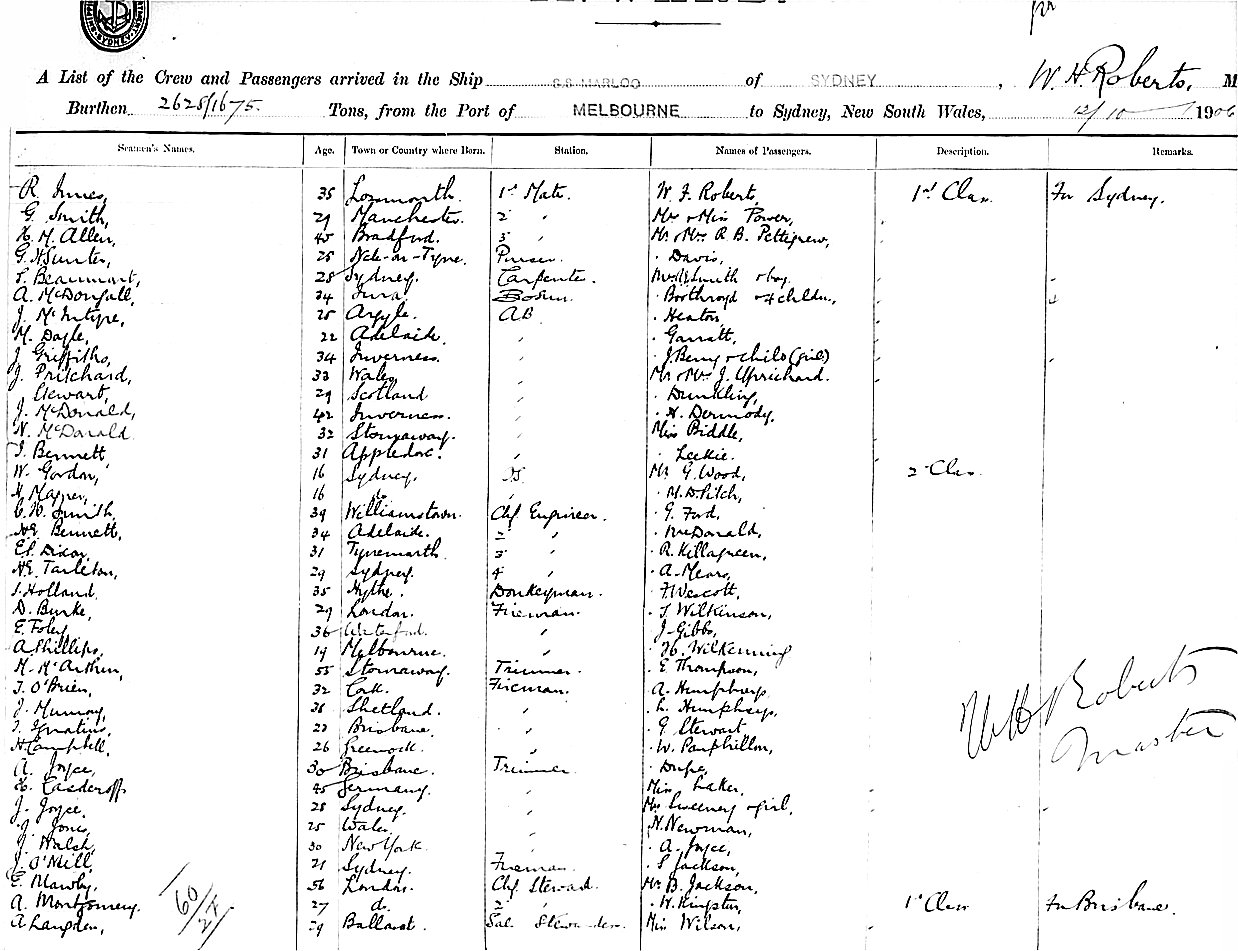 SYDNEY
A List of the Crew and Passengers arrived in the Ship S.S. MARLOO of SYDNEY, W. H. Roberts, M
Burthen 2628/1675. Tons, from the Port of MELBOURNE to Sydney, New South Wales, 12/10 1906
Seamen's Names. Age. Town or Country where Born. Station. Names of Passengers. Description. Remarks.
R. Innes, 35 1st Mate. W. J. Roberts, 1st Class. For Sydney.
G. Smith, 29 Manchester. 2 " Mr & Miss Power,
H. M. Allen, 45 Bradford. 3 " Mr & Mrs R. B. Pettigrew,
G. H. Sunter, 25 Nclc-on-Tyne. Purser. " Davis,
Beaumont, 28 Sydney. Carpenter. Mrs Smith & boy,
A. McDougall, 34 Bosun. " Boothroyd & 4 childn,
J. McIntyre, 25 Argyle. AB " Heaton,
M. Doyle, 22 Adelaide. " " Garratt,
J. Griffiths, 34 Inverness. " " J. Berry & child (girl)
J. Pritchard, 33 Wales. " Mr & Mrs J. Uprichard.
Stewart, 29 Scotland " " Dunkling,
J. McDonald, 42 Inverness. " " H. Dermody,
N. McDonald 32 Stornaway. " Miss Biddle,
J. Bennett 31 Appledore. " " Leckie.
W. Gordon, 16 Sydney. Mr. G. Wood, 2 Class.
16 do " " Pitch,
Smith, 39 Williamstown. Chf Engineer. " G. Ford,
Bennett, 34 Adelaide. 2 " " McDonald,
Dixon, 31 Tynemouth. 3 " " R. Killagreen,
Tarleton, 29 Sydney. 4 " " A. Mears,
Holland. 35 Hythe. Donkeyman. " Wescott,
D. Burke, 29 London. Fireman. " Wilkinson,
E. Foley, 36 Waterford. " " J. Gibbs,
A. Phillips, 19 Melbourne. " " Wilkenning
M. McArthur, 55 Stornaway. Trimmer. " E. Thompson,
O'Brien, 32 Cork. Fireman. " A. Humphreys,
J. Murray, 38 Shetland. " " L. Humphreys,
Ignatius, 23 Brisbane. " " G. Stewart
H. Campbell, 26 Greenock. " " W.
A. Joyce, 30 Brisbane. Trimmer. "
45 Germany. " Miss Laker,
J. Joyce. 28 Sydney. " Mrs Sweeney & girl,
J. Jones, 25 Wales. " " N. Newman,
J. Walsh, 30 New York. " " A. Joyce,
J. O'Neill, 21 Sydney. Fireman. " S. Jackson,
E. Mawby, 56 London. Chf Steward. Mr B. Jackson,
A. Montgomery. 27 do. 2 " " W. Kingston, 1st Class For Brisbane.
A. Langdon, 29 Ballarat. Sal. Stewardess. Miss Wilson,
60/27
W H Roberts
Master